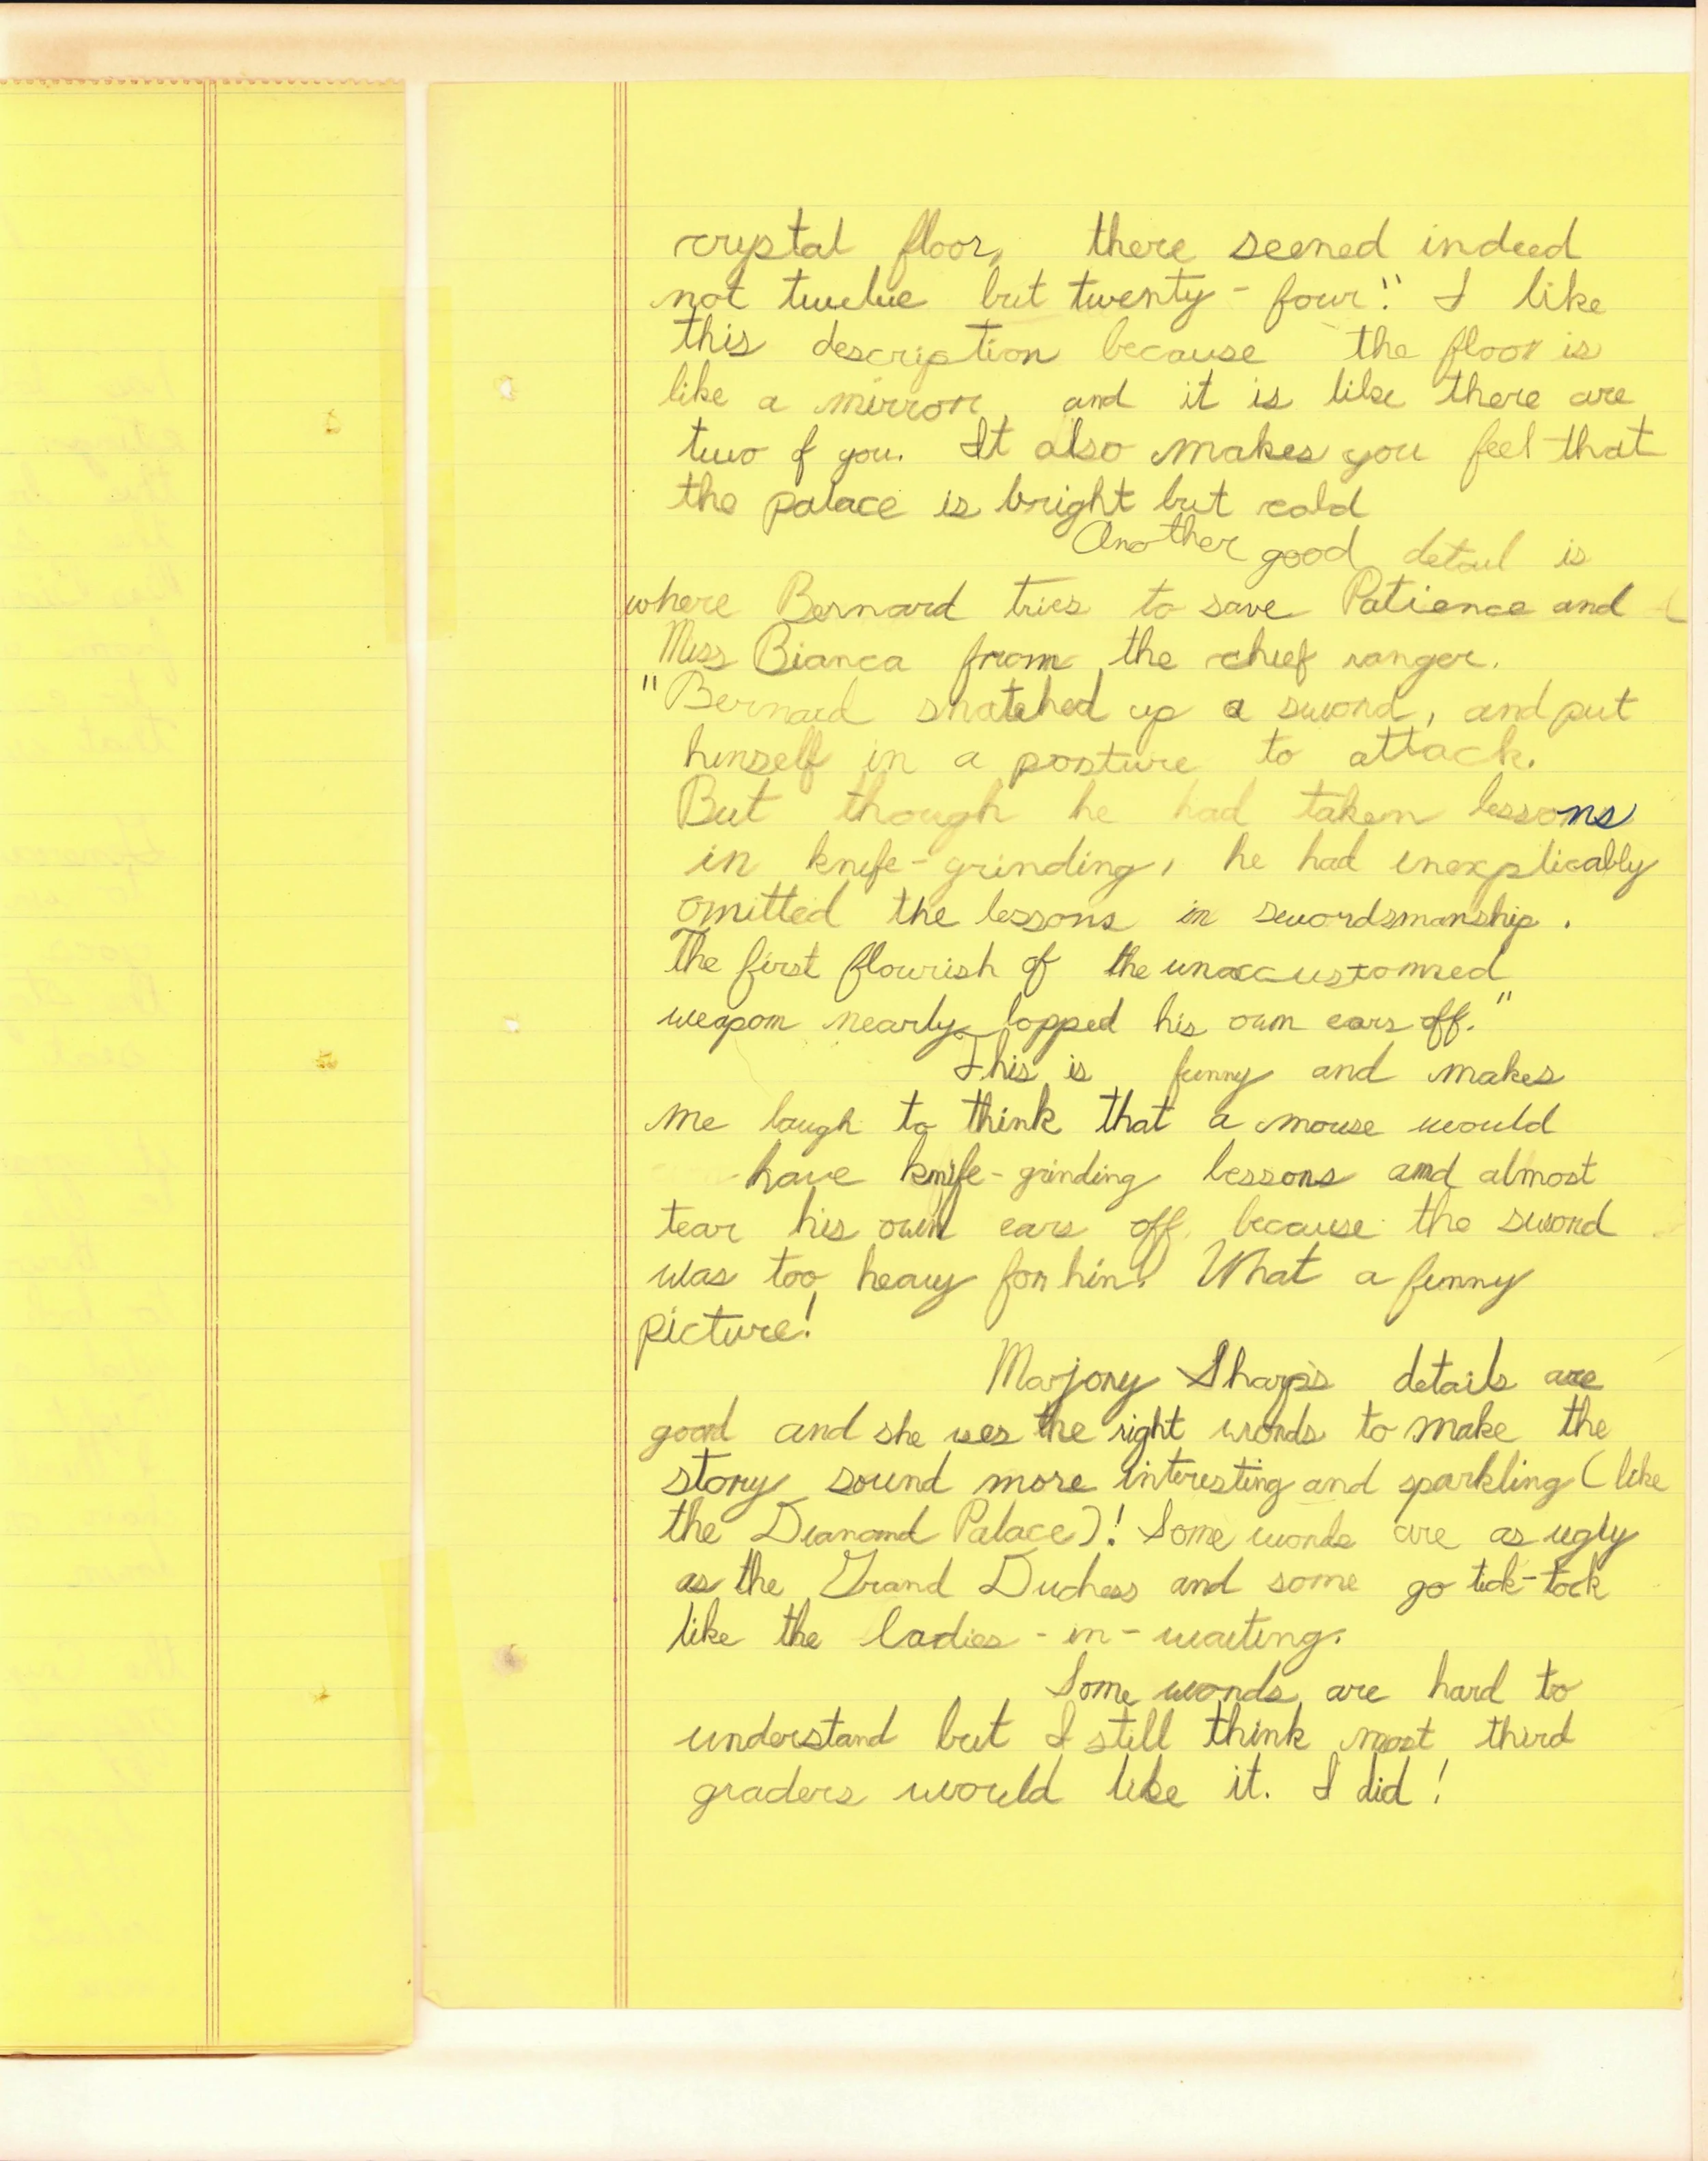 crystal floor, there seemed indeed
not twelve but twenty-four." I like
this description because the floor is
like a mirror and it is like there are
two of you. It also makes you feel that
the palace is bright but cold
Another good detail is
where Bernard tries to save Patience and
Miss Bianca from the chief ranger.
"Bernard snatched up a sword, and put
himself in a posture to attack.
But though he had taken lessons
in knife-grinding, he had inexplicably
omitted the lessons in swordsmanship.
The first flourish of the unaccustomed
weapon nearly lopped his own ears off."
This is funny and makes
me laugh to think that a mouse would
have knife-grinding lessons and almost
tear his own ears off because the sword
was too heavy for him! What a funny
picture!
Marjory Sharp's details are
good and she uses the right words to make the
story sound more interesting and sparkling (like
the Diamond Palace)! Some words are as ugly
as the Grand Duchess and some go tick-tock
like the ladies-in-waiting.
Some words are hard to
understand but I still think most third
graders would like it. I did!